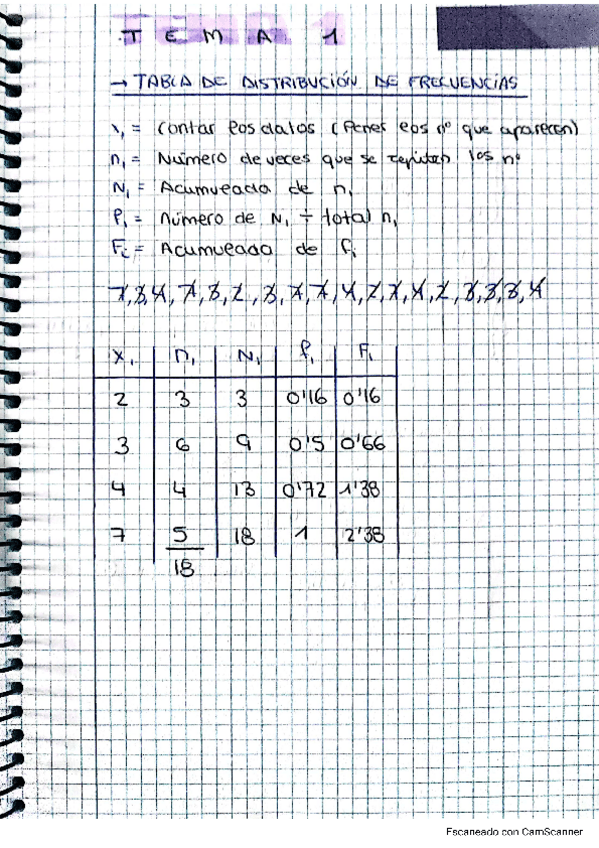 TEMA 1
→ TABLA DE DISTRIBUCIÓN DE FRECUENCIAS
xᵢ = contar los datos (Poner los nº que aparecen)
nᵢ = Número de veces que se repiten los nº
Nᵢ = Acumulada de nᵢ
fᵢ = número de Nᵢ ÷ total nᵢ
Fᵢ = Acumulada de fᵢ
7, 3, 4, 7, 3, 2, 3, 7, 7, 4, 2, 7, 4, 2, 3, 3, 3, 4
xᵢ nᵢ Nᵢ fᵢ Fᵢ
2 3 3 0'16 0'16
3 6 9 0'5 0'66
4 4 13 0'72 1'38
7 5 18 1 2'38
18
Escaneado con CamScanner